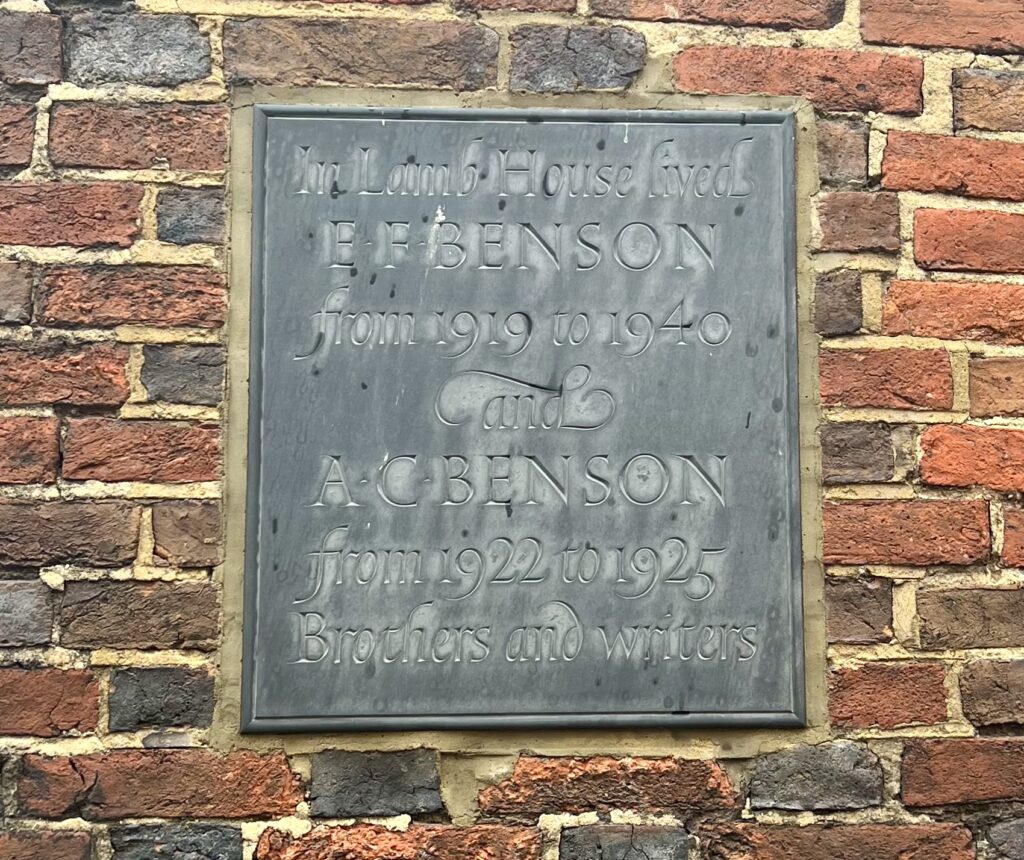 In Lamb House lived
E·F·BENSON
from 1919 to 1940
and
A·C·BENSON
from 1922 to 1925
Brothers and writers